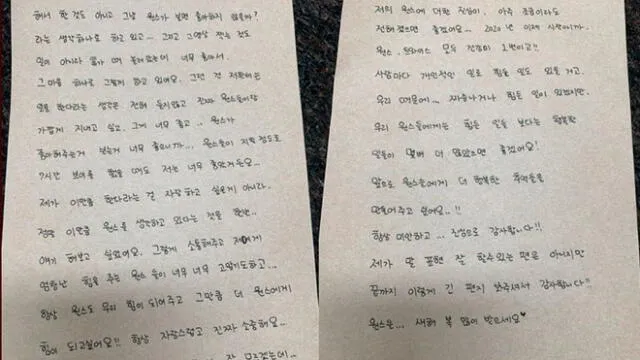 해서 한 것도 아니고 그냥 원스가 보면 좋아하지 않을까?
라는 생각하나로 하고 있고... 그리고 그영상 찍는 것도
일이 아니라 제가 더 놀려있는데 너무 좋아서.
그 마음 하나로 그렇게 하고 있어요. 그런 전 저한테는
일을 한다라는 생각은 전혀 들지않고 진짜 원스들이랑
가깝게 지내고 싶고. 그게 너무 좋고 .. 원스가
좋아해주는거 보는게 너무 좋으니까... 원스들이 지쳐 정도로
7시간 브이앱 했을 때도 저는 너무 좋았거든요...
제가 이만큼 한다라는 걸 자랑하고 싶은게 아니라.
정말 이만큼 원스를 생각하고 있다는 것을 한번..
얘기 해보고 싶었어요. 그렇게 소통해주고 저에게
엄청난 힘을 주는 원스들이 너무 너무 고맙기도하고...
항상 원스도 우리 힘이 되어주고 그만큼 더 원스에게
힘이 되고싶어요!! 항상 자랑스럽고 진짜 소중해요..
잘 모르겠는데...
저의 원스에 대한 진심이. 아주 조금이라도
전해졌으면 좋겠어요... 2020년 이제 시작이니까.
원스. 트와이스 모두 건강이 1번이고!!
사람마다 개인적인 일로 힘들 일도 있을 거고.
우리 때문에... 짜증나거나 힘든 일이 있겠지만.
우리 원스들에게는 힘든 일들 보다는 행복한
일들이 몇배 더 많았으면 좋겠어요!
앞으로 원스들에게 더 행복한 추억들을
만들어주고 싶어요..!!
항상 미안하고... 진심으로 감사합니다!!
제가 말 표현 잘 할수있는 편은 아니지만
끝까지 이렇게 긴 편지 봐주셔서 감사합니다!!
원스들... 새해 복 많이 받으세요♥